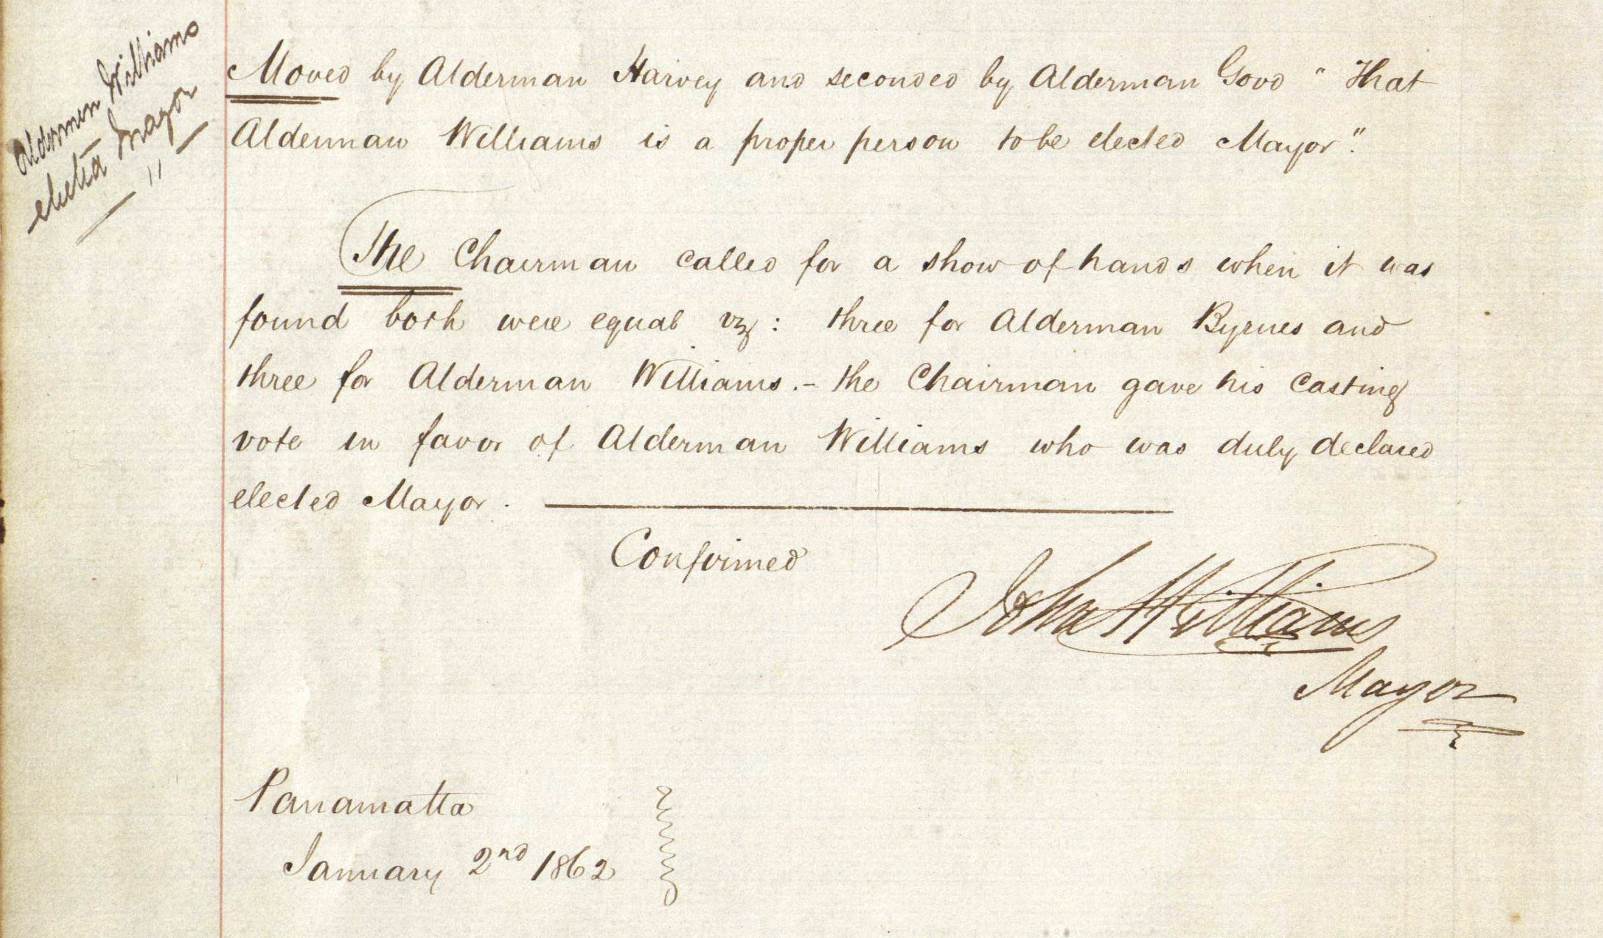 Alderman Williams
elected Mayor
Moved by Alderman Harvey and seconded by Alderman Good "That
Alderman Williams is a proper person to be elected Mayor".
The Chairman called for a show of hands when it was
found both were equal viz: three for Alderman Byrnes and
three for Alderman Williams. – the Chairman gave his casting
vote in favor of Alderman Williams who was duly declared
elected Mayor.
Confirmed
John Williams
Mayor
Parramatta
January 2nd 1862